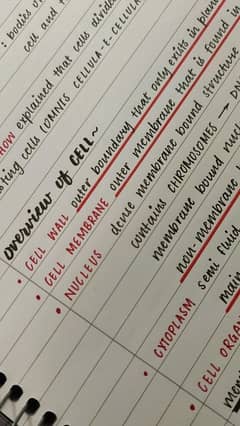 : bodies of
cell and t
row explained that cells divide
sting cells (OMNIS CELLULA-E-CELLULA
overview of CELL~
• CELL WALL outer boundary that only exists in plan
• CELL MEMBRANE outer membrane that is found in
• NUCLEUS dense membrane bound structure
contains CHROMOSOMES → DN
membrane bound nucl
non-membrane
• CYTOPLASM semi fluid
main
• CELL ORGA
mem